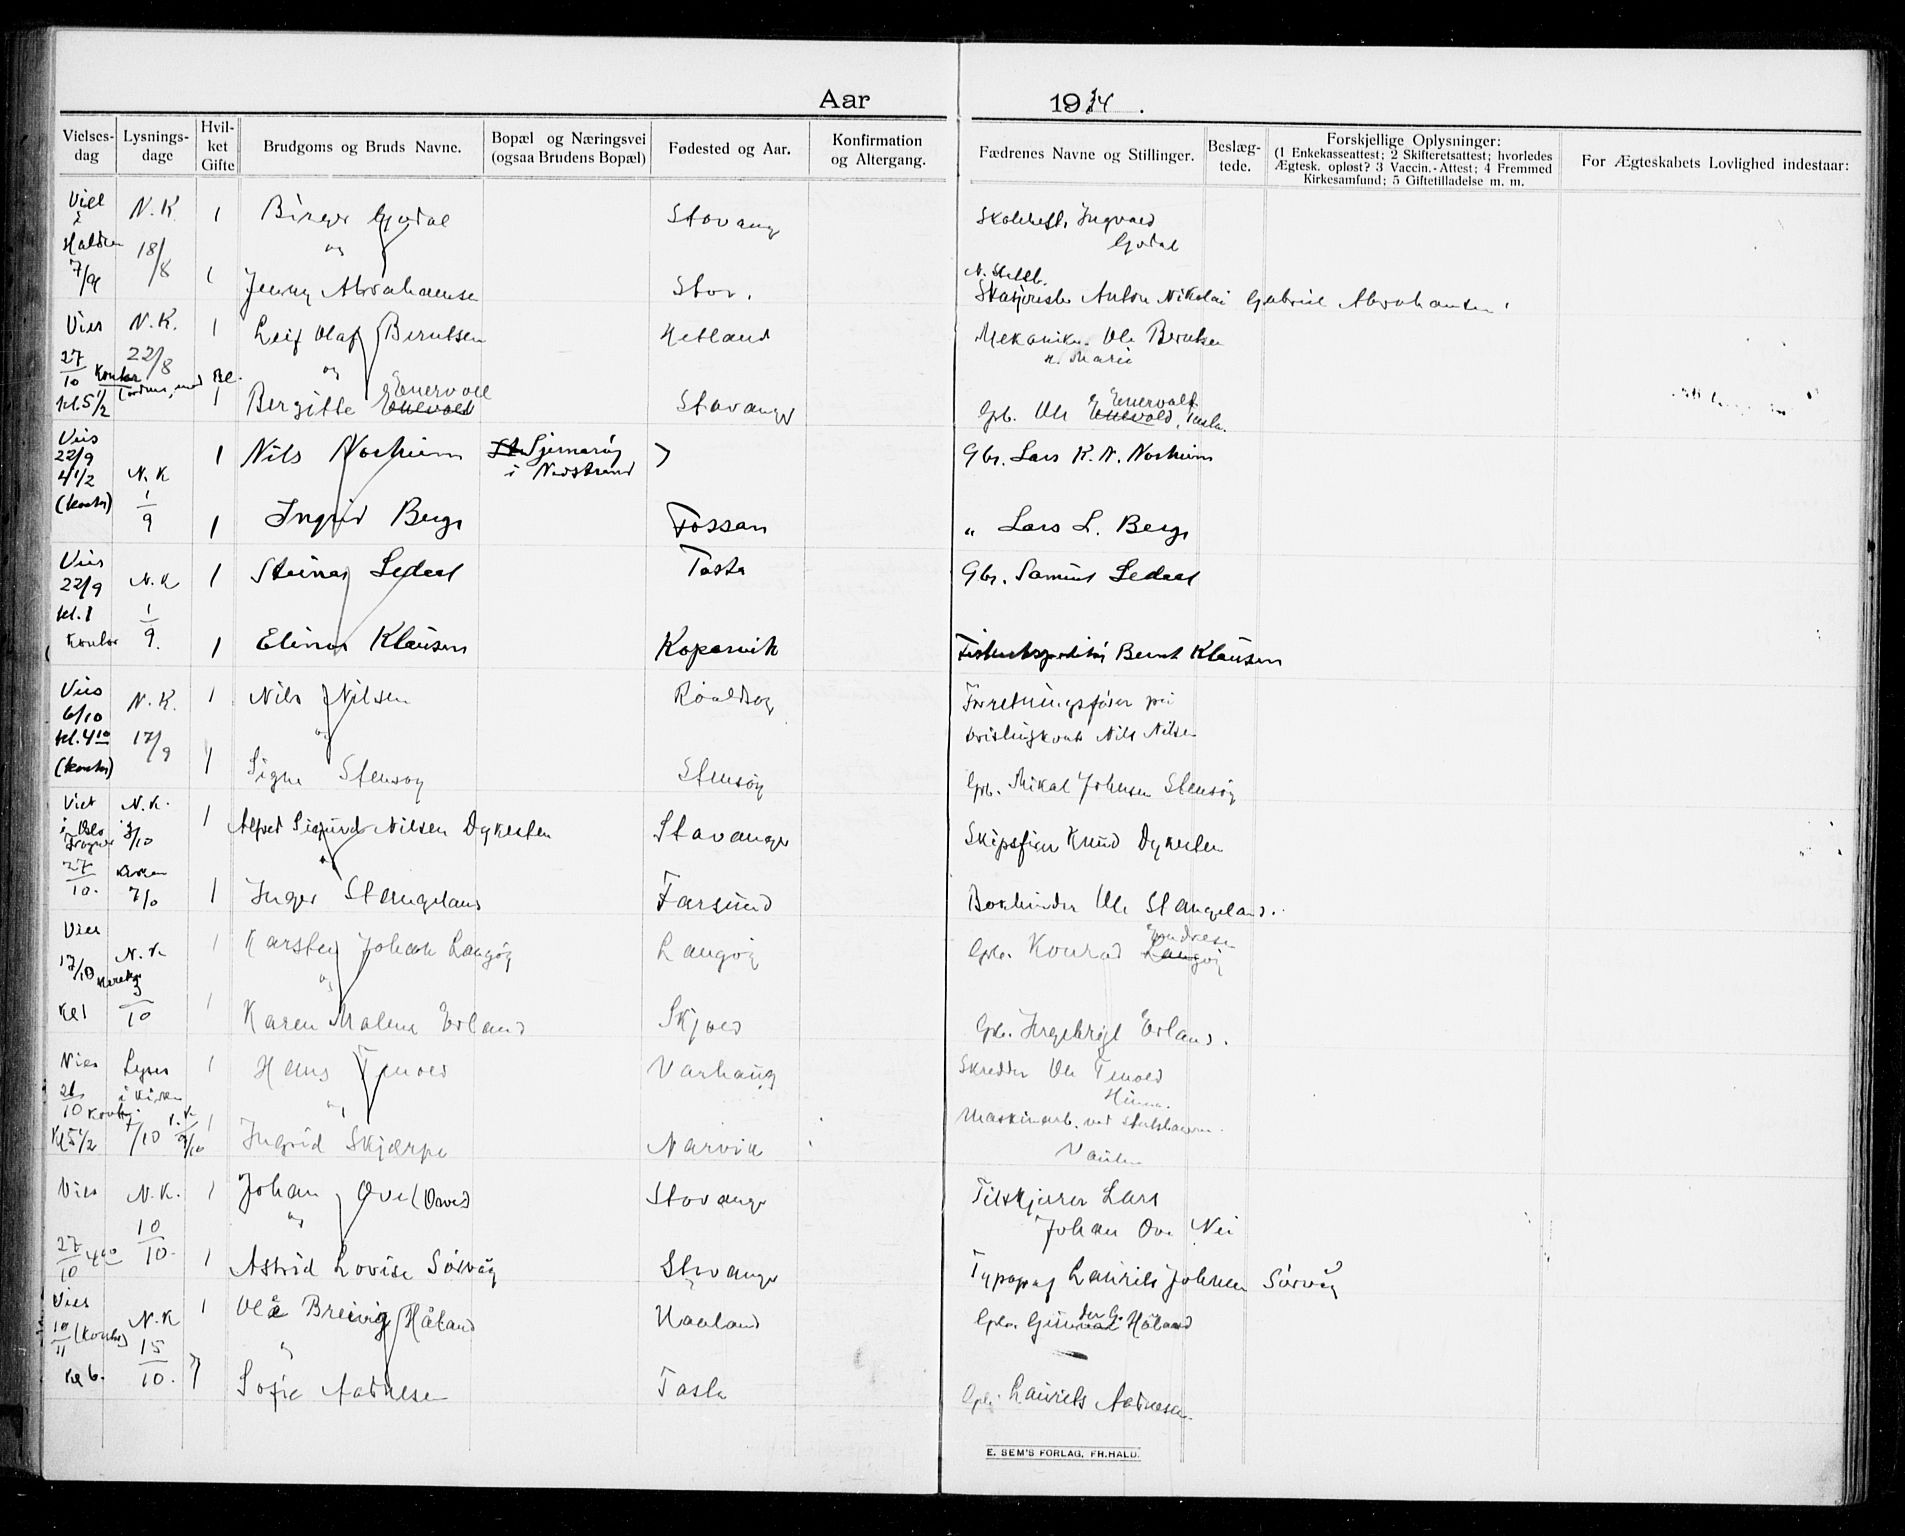 Aar 1934.
Vielsesdag
Lysningsdage
Hvilket Gifte
Brudgoms og Bruds Navne.
Bopæl og Næringsvei (ogsaa Brudens Bopæl)
Fødested og Aar.
Konfirmation og Altergang.
Fædrenes Navne og Stillinger.
Beslægtede.
Forskjellige Oplysninger:
(1 Enkekasseattest; 2 Skifteretsattest; hvorledes
Ægtesk. opløst? 3 Vaccin.-Attest; 4 Fremmed
Kirkesamfund; 5 Giftetilladelse m. m.
For Ægteskabets Lovlighed indestaar:
Viet i Halden 7/9 N.K. 18/8 1 Birger Godal Stavang Ingvald Godal
og
1 Jenny Abrahamsen Stav. Anton Nikolai Gabriel Abrahamsen
Vies 27/10 Kontor kl. 5 1/2 N.K. 22/8 1 Leif Olaf Berntsen Hetland Mekaniker Ole Berntsen
og
1 Bergitte Enervold Stavanger Gbr. Ole Enervold, Tasta.
Vies 22/9 4 1/2 (Kontor) N.K 1/9 1 Nils Norheim Sjernarøy i Nedstrand Gbr. Lars K. N. Norheim
1 Ingrid Berge Fossan " Lars L. Berge
Vies 22/9 kl. 1 Kontor N.K 1/9. 1 Steinar Ledaal Tasta Gbr. Samuel Ledaal
1 Elinor Klausen Kopervik Bernt Klausen
Vies 6/10 kl. 4 10 (Kontor) N.K. 17/9 1 Nils Nilsen Roaldsøy Forretningsfører på
og brislingkont. Nils Nilsen
1 Signe Stensøy Stensøy Gbr. Mikal Johnsen Stensøy
Viet i Oslo Frogner 27/10. N.K. 3/10 1 Alfred Sigurd Nilsen Dykesten Stavanger Skipsfører Knud Dykesten
og
1 Inger Stangeland Farsund Bokbinder Ole Stangeland.
Vies 17/10 Kl 1 N.K 3/10 1 Karsten Johan Langøy Langøy Gbr. Konrad Endresen
og
1 Karen Malene Erland Skjold Gbr. Ingebrigt Erland.
Vies 26/10 Kontor Kl 5 1/2 Lyses i Kirken 7/10 N.K 9/10 1 Hans Tenold Varhaug Skredder Ole Tenold
Hinna.
og
1 Ingrid Skjærpe Narvik Maskinarb. ved
Vaulen
Vies 27/10 4 00 N.K. 10/10. 1 Johan Ove (Oved) Stavanger Tilskjærer Lars
og Johan Ove Nei
1 Astrid Lovise Sørvåg Stavanger Typograf Laurits Johnsen Sørvåg
Vies 10/11 (Kontor) Kl 6. N.K 15/10. 1 Ole Breivig Håland Haaland Gbr. Gunder G. Håland
og
1 Sofie Aadnesen Tasta Gbr. Laurits Aadnesen
E. SEM'S FORLAG, FR.HALD.